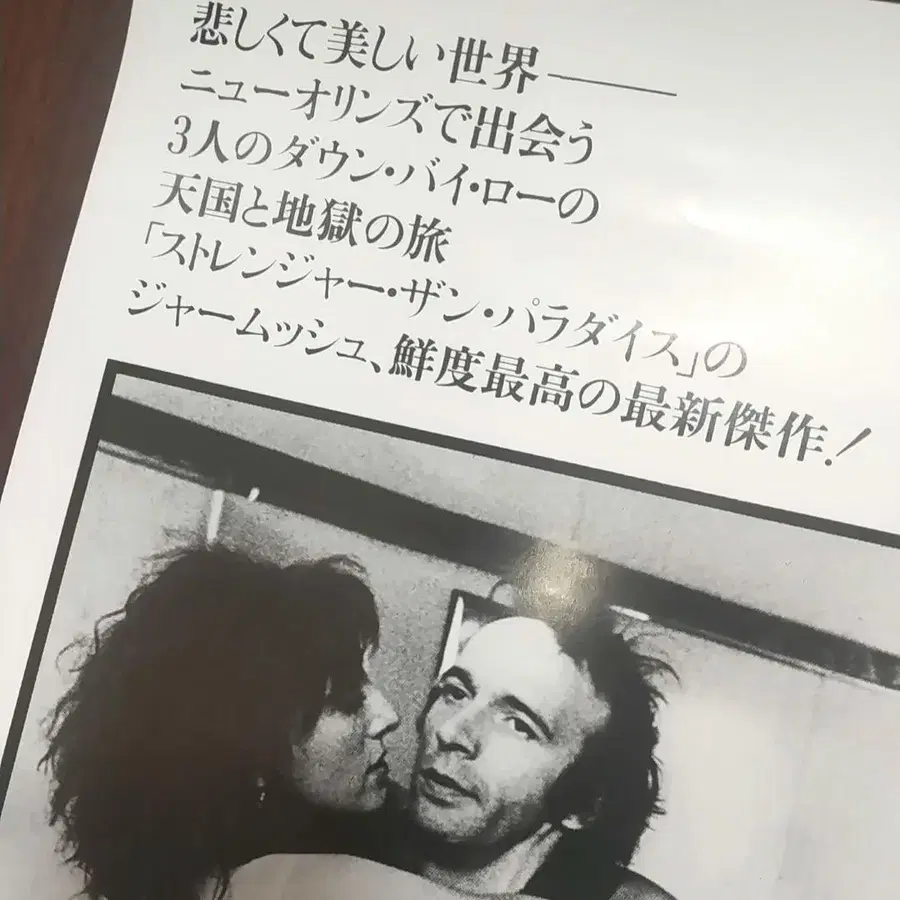 悲しくて美しい世界――
ニューオリンズで出会う
3人のダウン・バイ・ローの
天国と地獄の旅
「ストレンジャー・ザン・パラダイス」の
ジャームッシュ、鮮度最高の最新傑作!